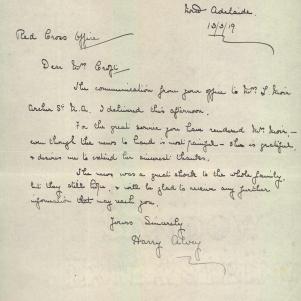 Nth Adelaide.
13/3/19
Red Cross Office
Dear Mr
The communication from your office to Mrs S. Moir
Archer St N.A. I delivered this afternoon.
For the great service you have rendered Mrs Moir –
even though the news to hand is most painful – she is grateful,
& desires me to extend her sincerest thanks.
The news was a great shock to the whole family,
but they still hope, & will be glad to receive any further
information that may reach you.
Yours Sincerely
Harry Alvey